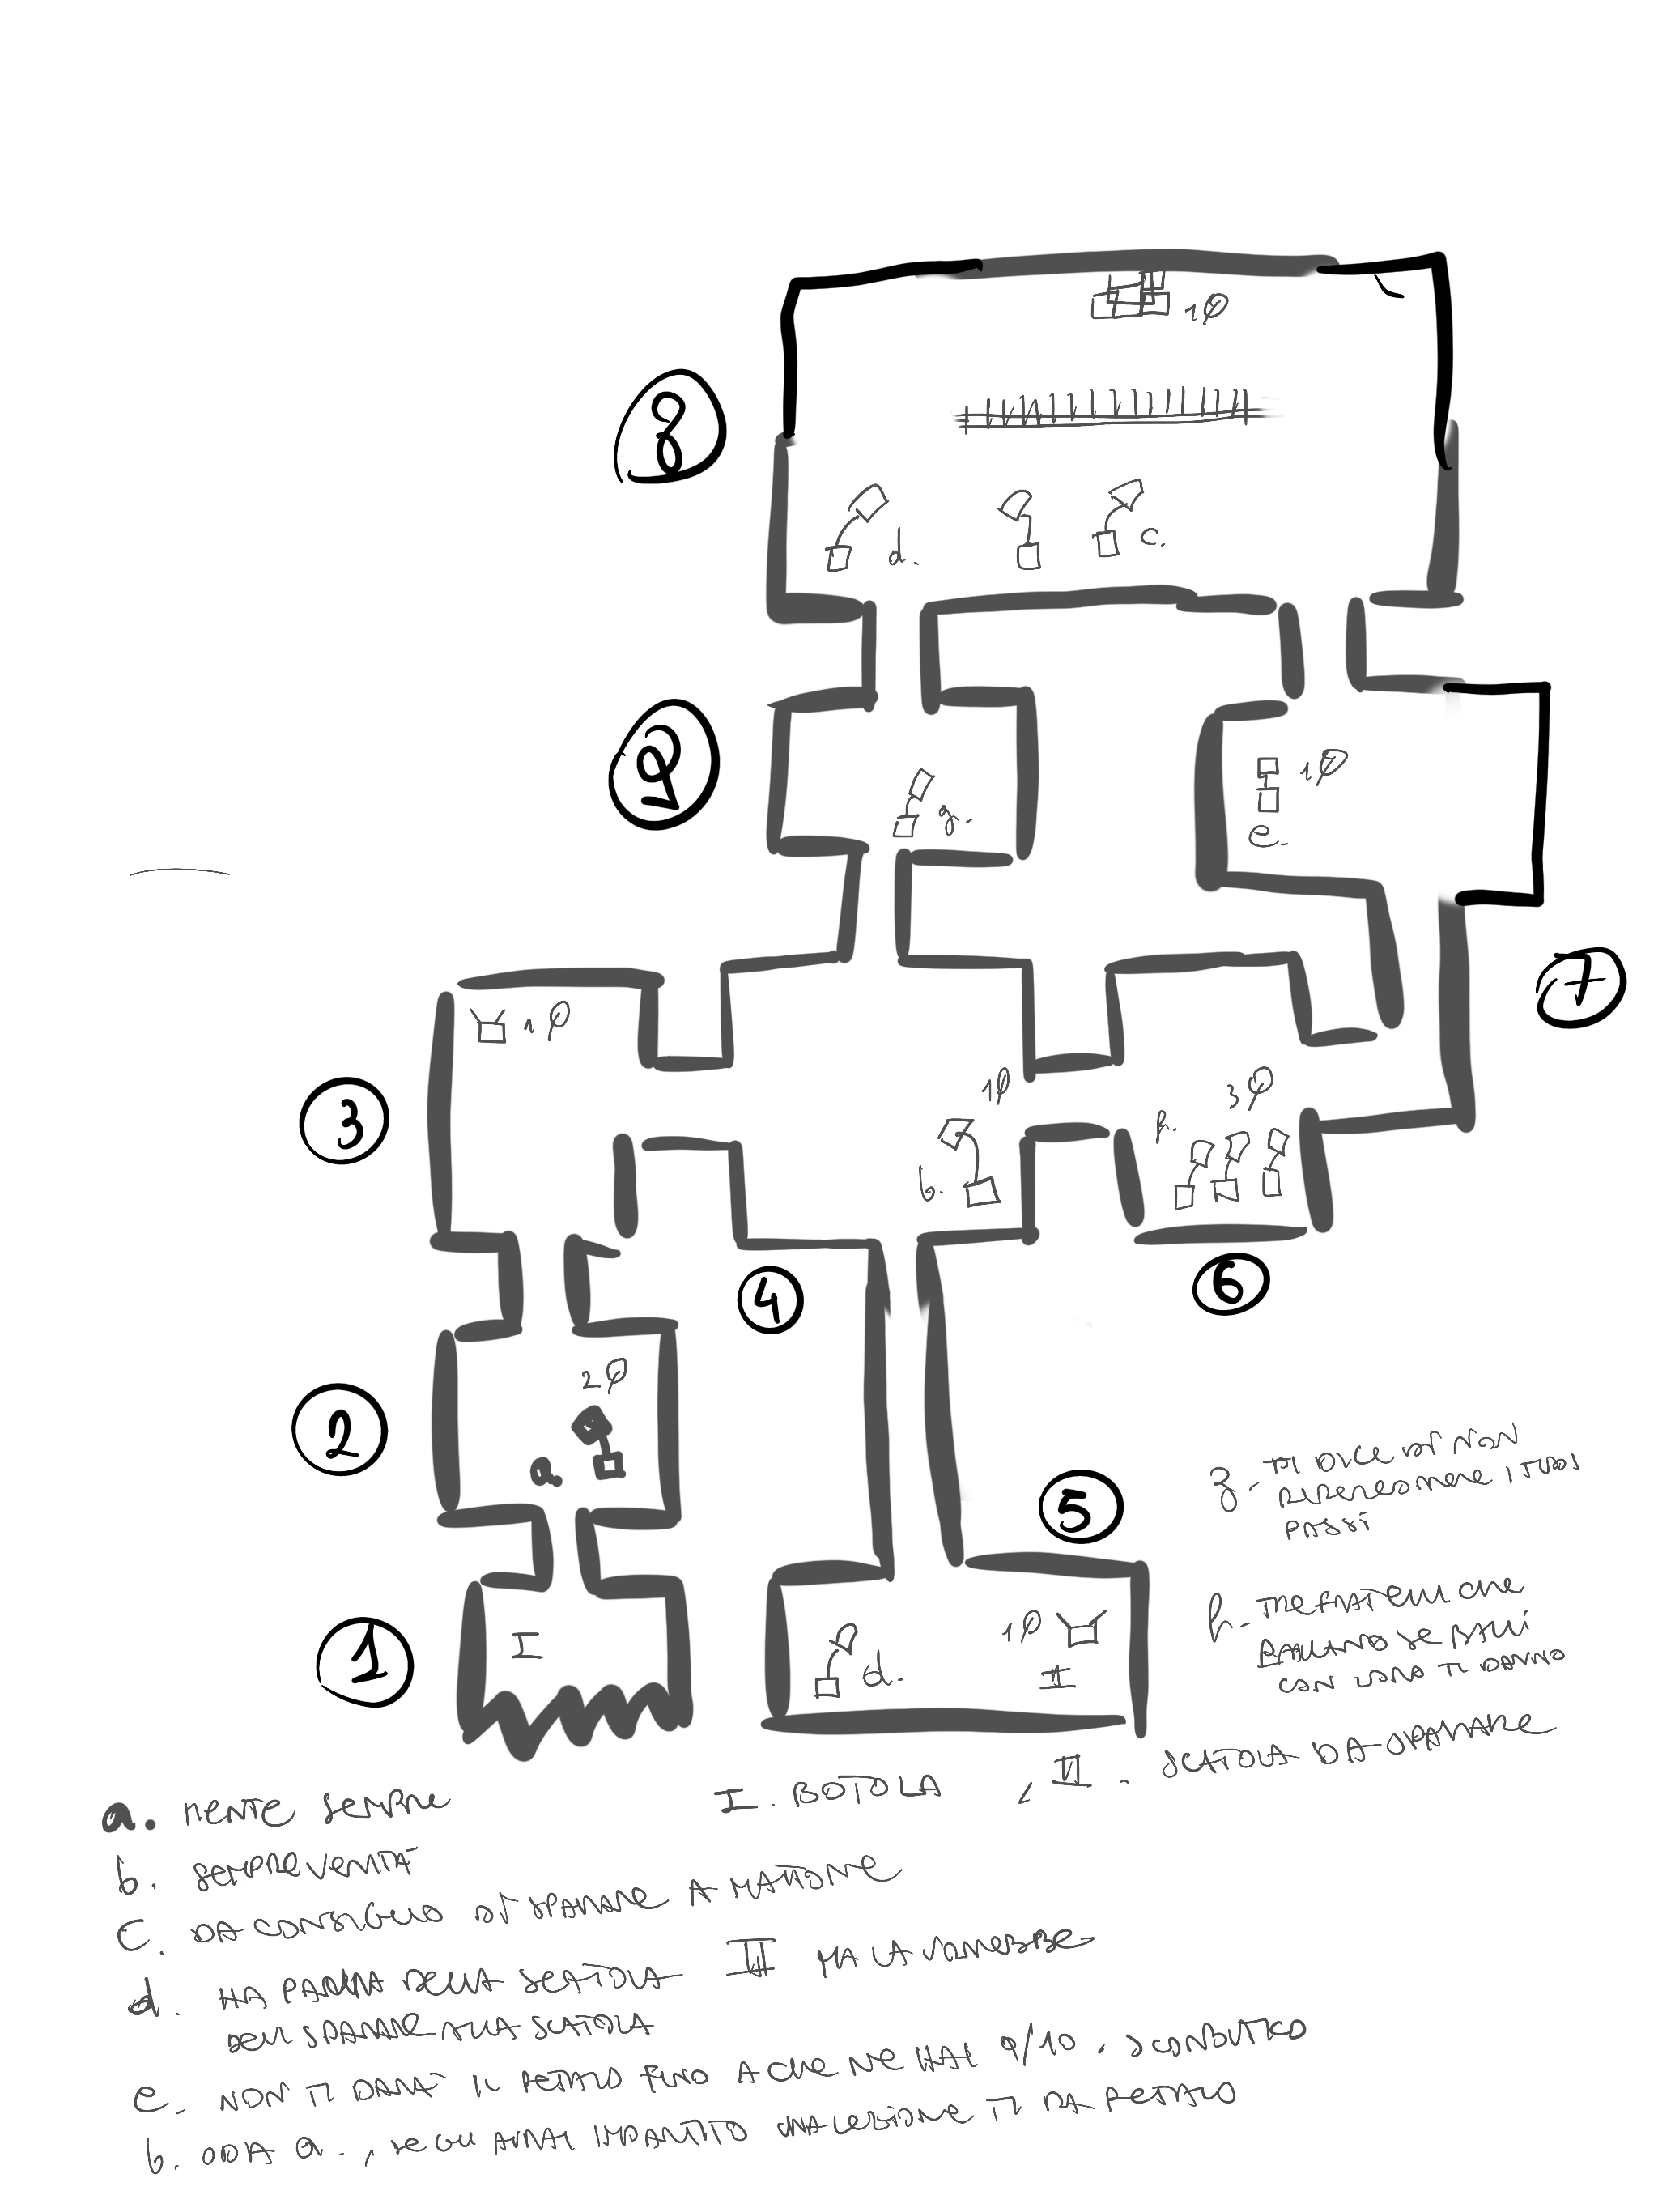 1φ
8
d.
c.
9
g.
1φ
e.
7
1φ
3
1φ
b.
h.
3φ
4
6
2
2φ
a.
5
1
I
d.
1φ
II
g- TI DICE DI NON
RIPERCORRERE I TUOI
PASSI
h- TRE FRATELLI CHE
BALLANO SE BALLI
CON LORO TI DANNO
a. MENTE SEMPRE
I. BOTOLA , II. SCATOLA DA SPARARE
b. SEMPRE VERITÀ
C. DA CONSIGLIO DI SPARARE A MATTONE
d. HA PAURA DELLA SCATOLA II MA LA VORREBBE
SPARARE ALLA SCATOLA
e. NON TI DARÀ IL PETALO FINO A CHE NE HAI 9/10. SCORBUTICO
b. ODIA a., SE GLI AVRAI IMPARTITO UNA LEZIONE TI DA PETALO